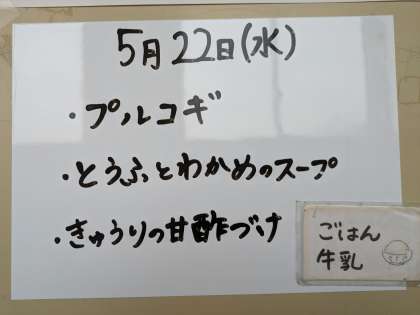 5月22日(水)
・プルコギ
・とうふとわかめのスープ
・きゅうりの甘酢づけ
ごはん
牛乳